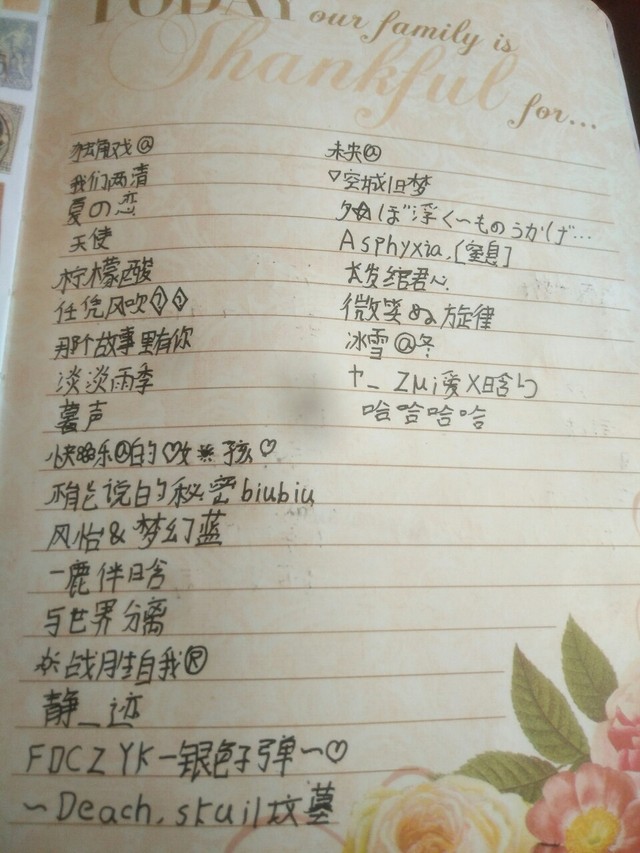 TODAY our family is
Thankful
for...
独角戏@
我们两清
夏の恋
天使
柠檬酸
任凭风吹
那个故事里有你
淡淡雨季
暮声
快乐的♡女※孩♡
不能说的秘密biubiu
风怡&梦幻蓝
一鹿伴晗
与世界分离
战胜自我®
静_迹
FDCZYK一银色子弹~♡
~Deach.skuil坟墓
未央
♡空城旧梦
ぼ浮く~ものうかげ…
Asphyxia.[窒息]
长发绾君心
微笑ぬ旋律
冰雪@冬
十_ZMi爱X晗
哈哈哈哈